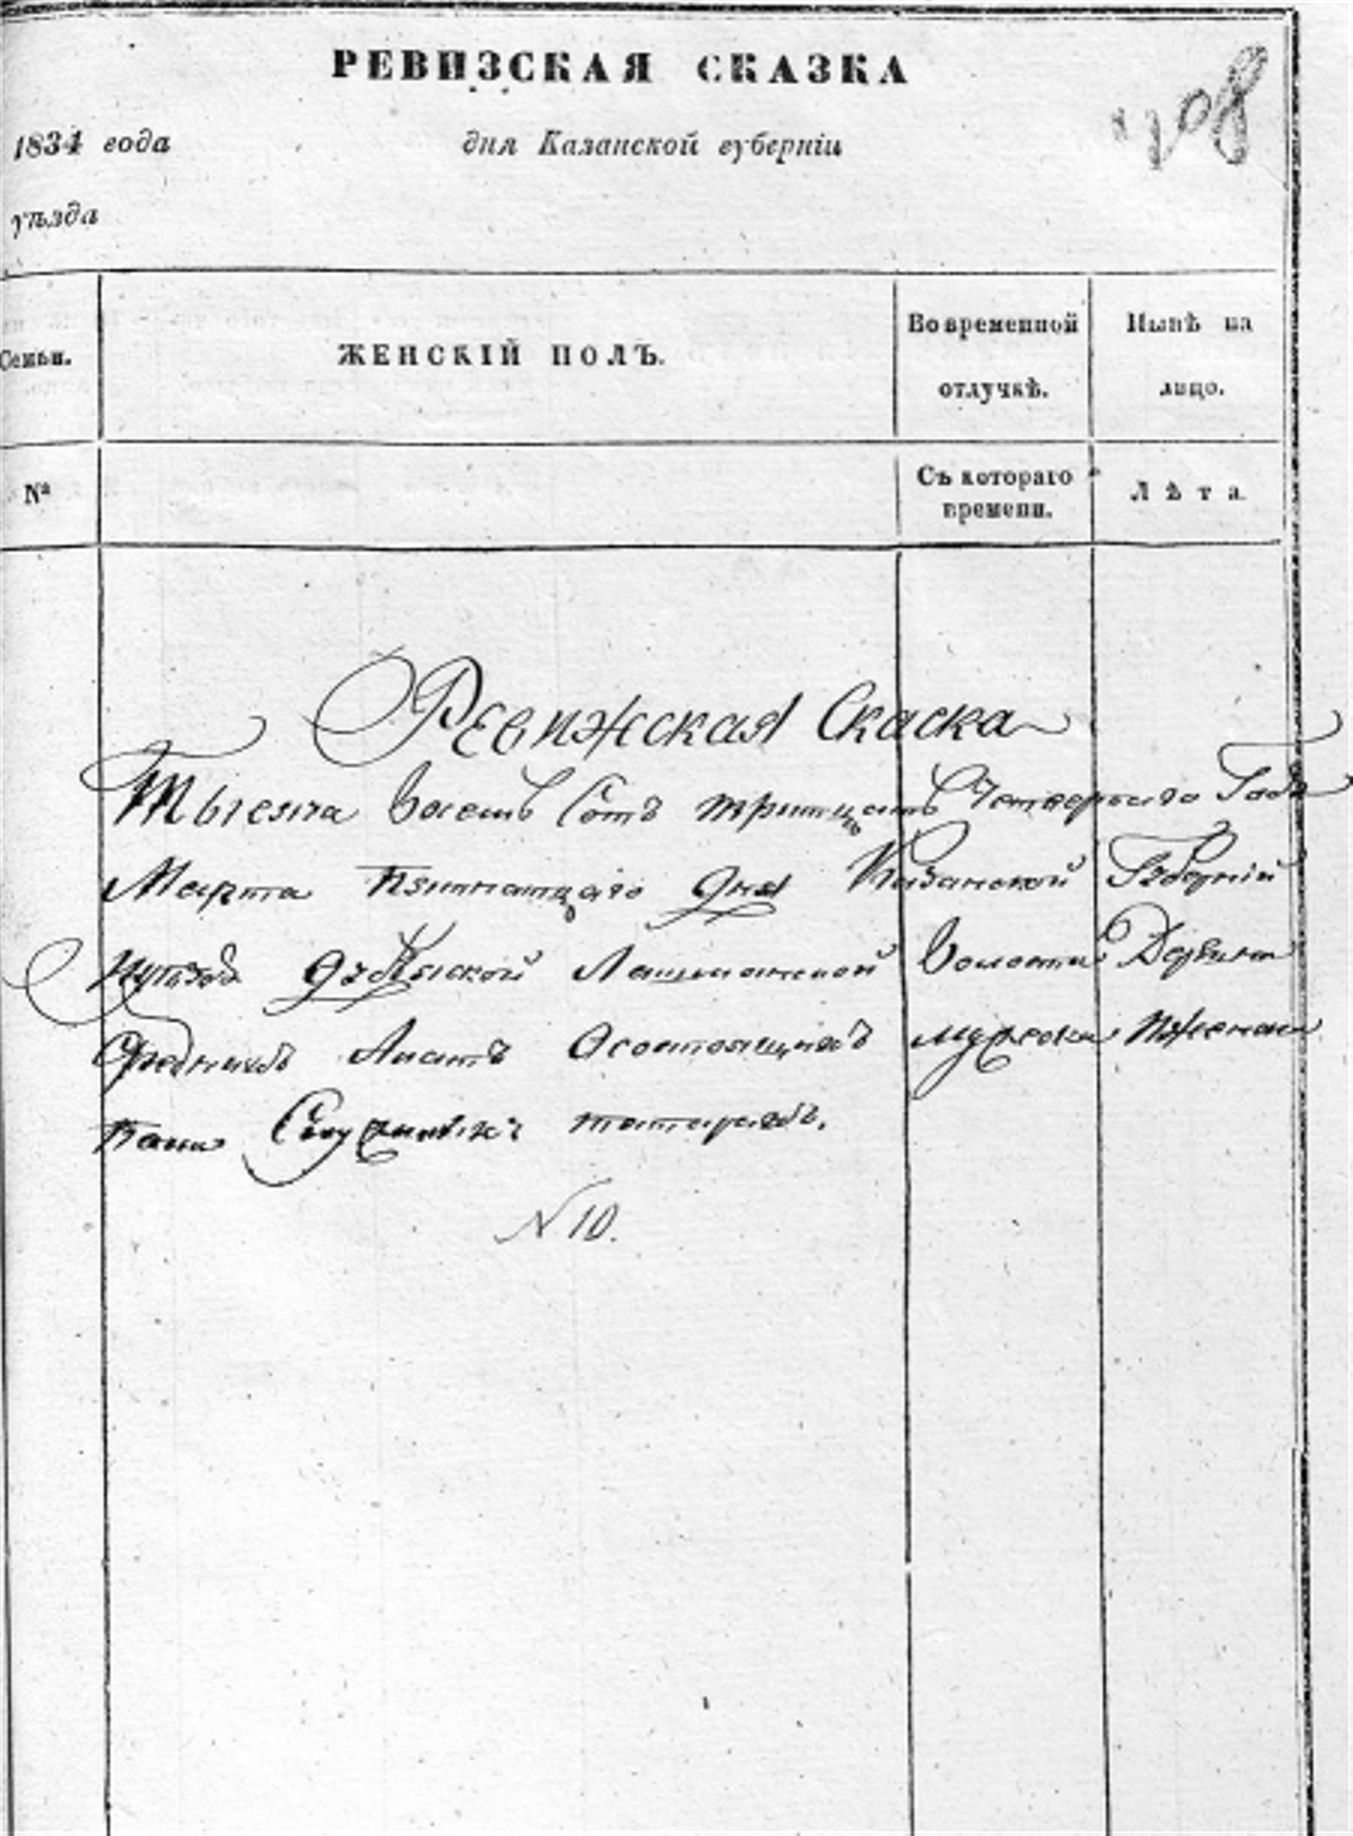 РЕВИЗСКАЯ СКАЗКА
1834 года дня Казанской губерніи
уѣзда
Семьи. ЖЕНСКІЙ ПОЛЪ. Во временной отлучкѣ. Нынѣ на лицо.
№ Съ котораго времени. Лѣта
Ревижская Скаска
Тысяча восемь Сотъ тритцать Четвертаго Года
Марта дня Казанской Губерніи
Лашманской волости Деревни
Среднихъ Осостоящихъ мужеска Иженска
татарахъ.
N 10.